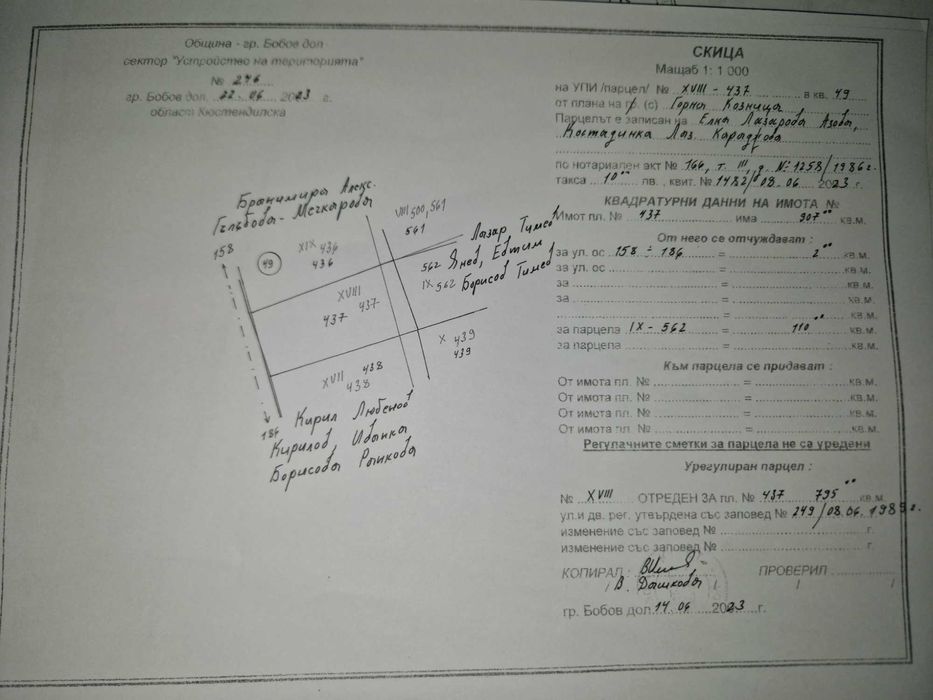 Община - гр. Бобов дол
сектор "Устройство на територията"
№ 246
гр. Бобов дол 22.06 2023 г.
област Кюстендилска
СКИЦА
Мащаб 1: 1 000
на УПИ /парцел/ № XVIII - 437 в кв. 49
от плана на гр. (с) Горна Козница
Парцелът е записан на Елка Лазарова Азова,
Костадинка Лаз.
по нотариален акт № 166, т. III, д. № 1258/1986 г.
такса 10 °° лв., квит. № 1482/08.06 2023 г.
КВАДРАТУРНИ ДАННИ НА ИМОТА №
Имот пл. № 437 има 907 °° кв.м.
От него се отчуждават :
за ул. ос 158 - 186 = 2 °° кв.м.
за ул. ос = кв.м.
за = кв.м.
за = кв.м.
= кв.м.
за парцела IX - 562 = 110 °° кв.м.
за парцела = кв.м.
Към парцела се придават :
От имота пл. № = кв.м.
От имота пл. № = кв.м.
От имота пл. № = кв.м.
От имота пл. № = кв.м.
Регулачните сметки за парцела не са уредени
Урегулиран парцел :
№ XVIII ОТРЕДЕН ЗА пл. № 437 795 °° кв.м.
ул.и дв. рег. утвърдена със заповед № 249/08.06.1989 г.
изменение със заповед № г.
изменение със заповед № г.
КОПИРАЛ : ПРОВЕРИЛ
/ В. Дашкова / / /
гр. Бобов дол 14.06 2023 г.
Бранимира Алекс.
Гълъбова - Мечкарова
158
49
XIX 436
436
VIII 500,561
561
Лазар Тимев
562 Янев, Евтим
IX 562 Борисов Тимев
XVIII
437
437
X 439
439
XVII 438
438
186
Кирил Любенов
Кирилов, Иванка
Борисова Рашкова